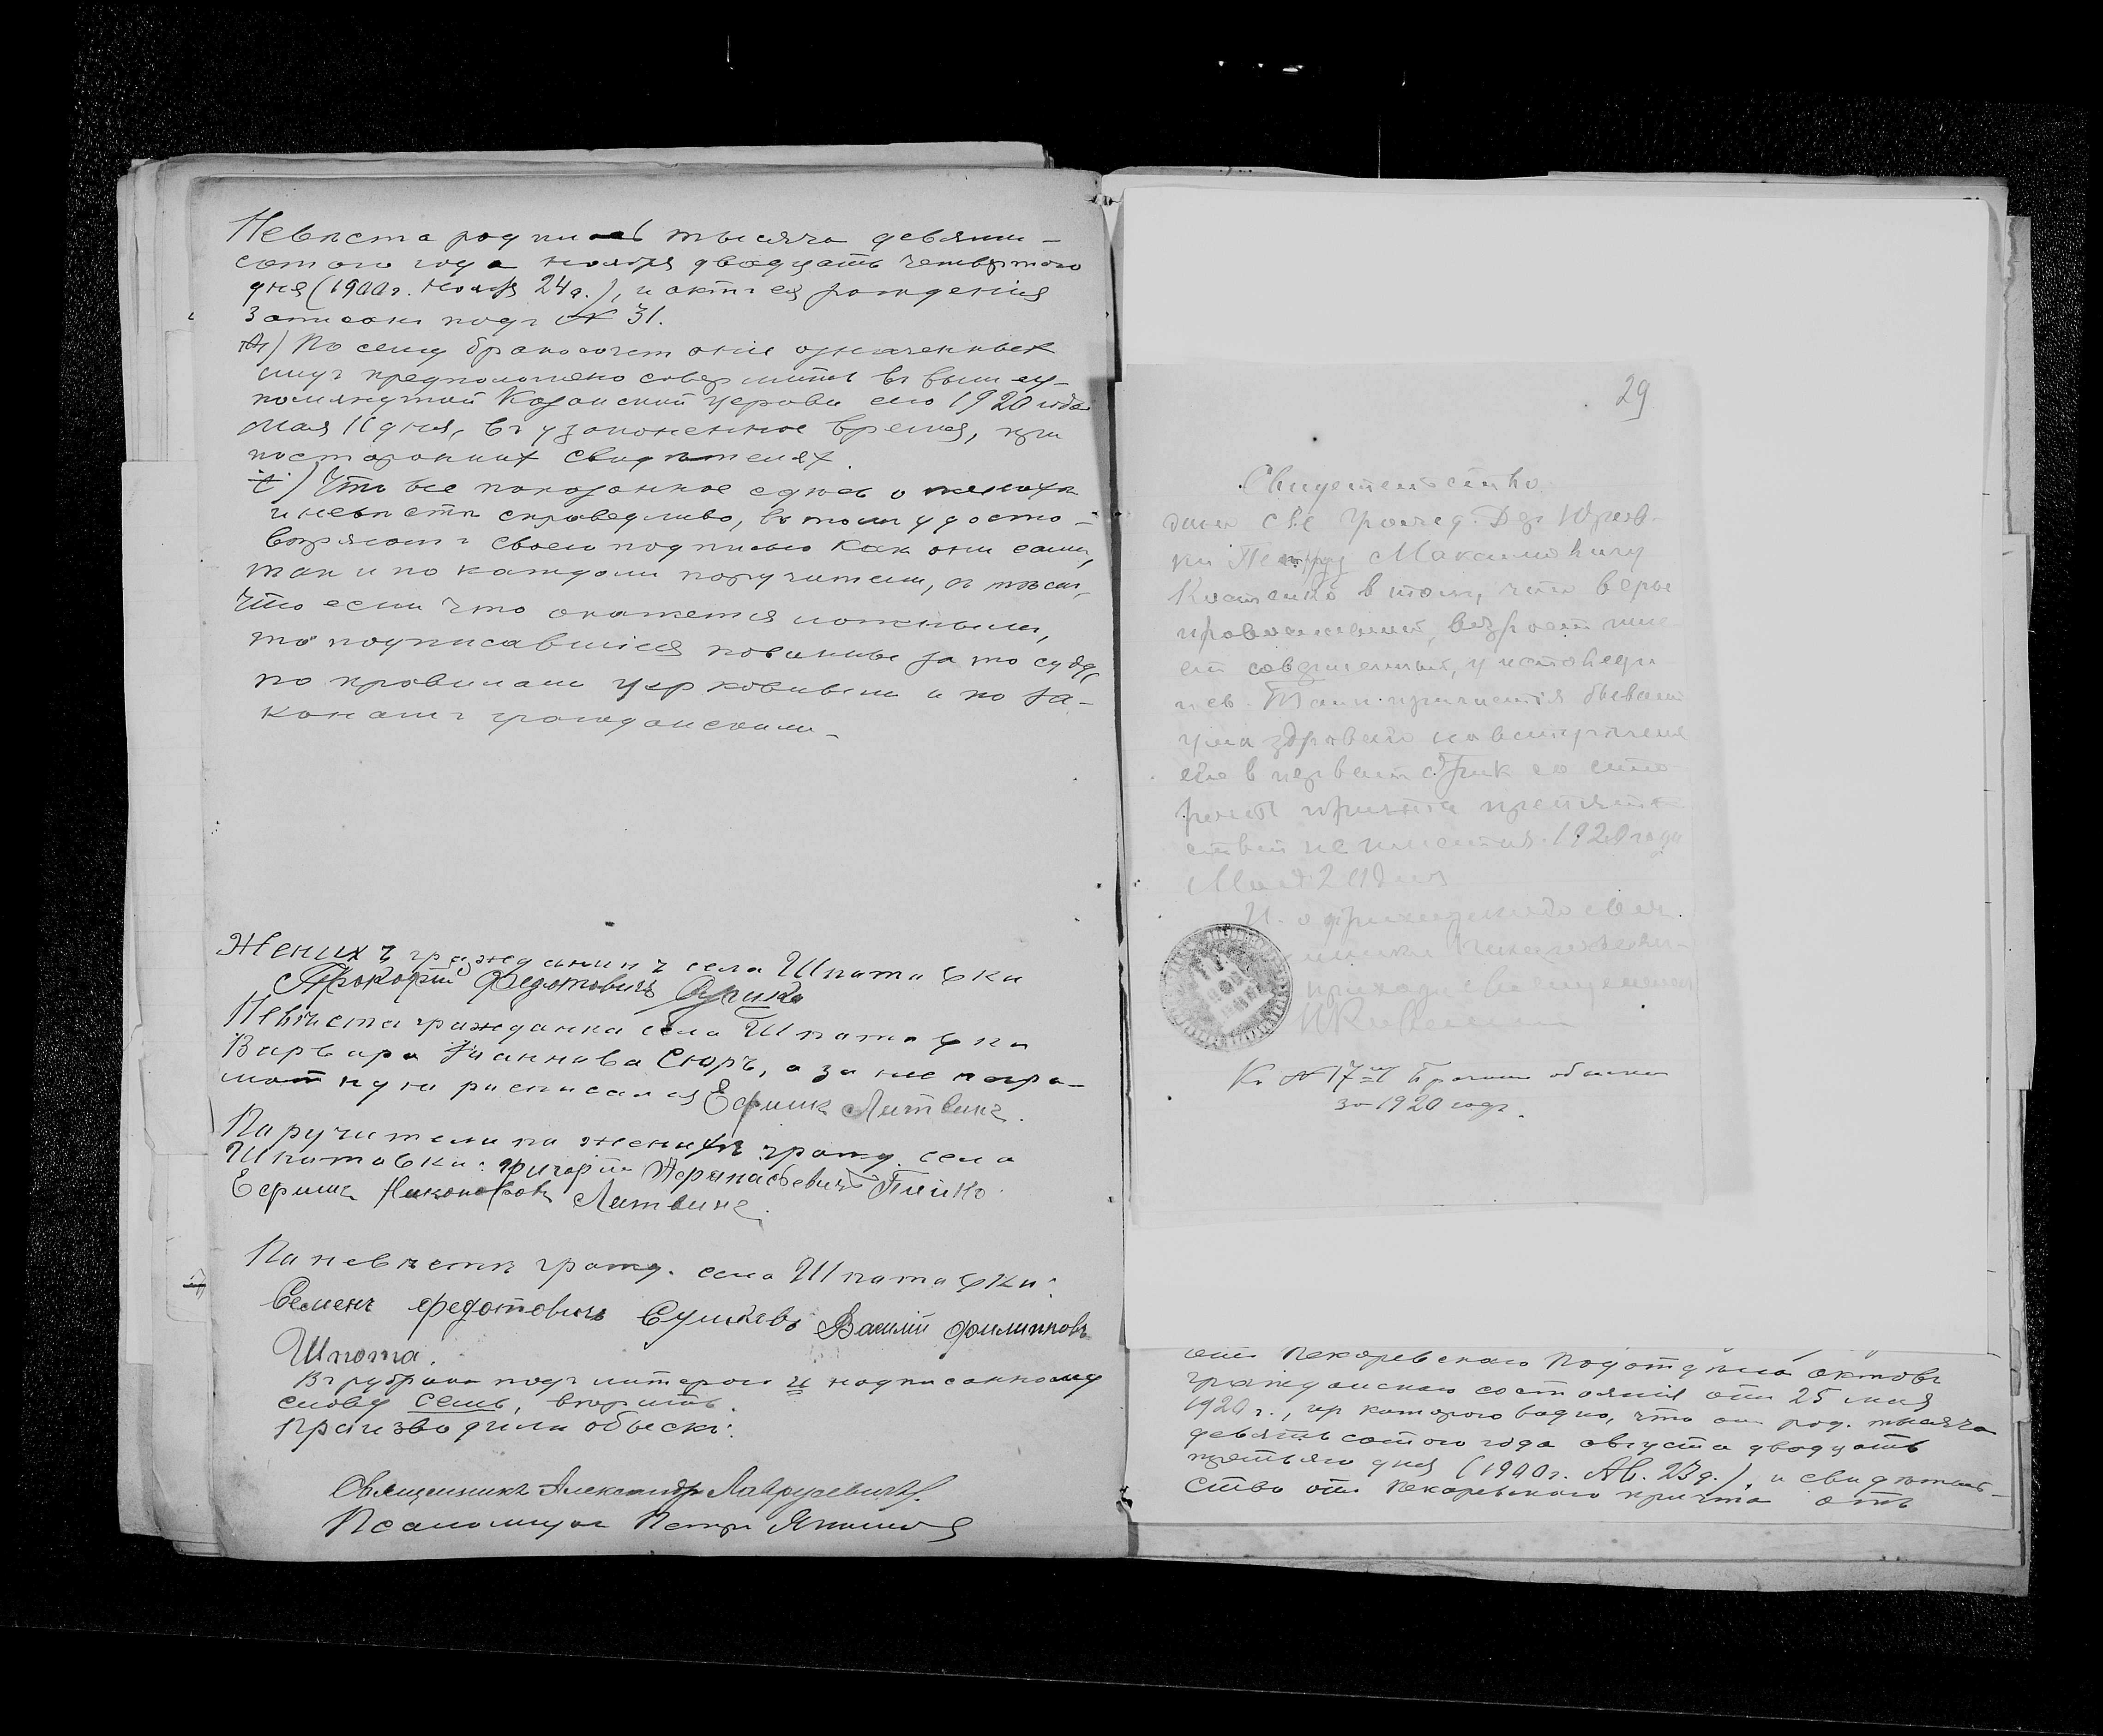 Невѣста родилась тысяча девяти-
сотаго года ноября двадцать четвертаго
дня (1900 г. Нояб. 24 д.), и актъ ея рожденія
записанъ подъ № 31.
По сему бракосочетаніе означенныхъ
лицъ предположено совершить въ выше у-
помянутой Казанской церкви сего 1920 года
мая 11 дня, въ узаконенное время, при
постороннихъ свидѣтеляхъ.
Что все показанное здѣсь о женихѣ
и невѣстѣ справедливо, въ томъ удосто-
вѣряютъ своею подписью какъ они сами,
такъ и по каждомъ поручители, съ тѣмъ,
что если что окажется ложнымъ,
то подписавшіеся повинны за то суду
по правиламъ церковнымъ и по за-
конамъ гражданскимъ.
Женихъ гражданинъ села Шпатовки
Прокофій Федотовичъ
Невѣста гражданка села Шпатовки
Варвара Іоаннова Сюръ, а за нее негра-
мотную расписался Ефимъ Литвинъ.
Поручители по женихѣ гражд. села
Шпатовки: Григорій Афанасьевичъ
Ефимъ Никоноровъ Литвинъ.
По невѣстѣ гражд. села Шпатовки:
Семенъ Федотовичъ Сушковъ Василій Филипповъ
Шпота.
Въ рубрикѣ подъ литерою и надписанному
слову семь, вѣрить.
Производили обыскъ:
Священникъ Александръ
Псаломщикъ Петръ
29
Свидетельство
дано сие гражд. Дер. Юрьев-
ки Петру Максимовичу
Костенко в том, что веры
православной, возраст име-
ет совершенный, у исповеди
и св. Таин причастия бывает
ума здраваго и на вступление
его в первый брак со сто-
роны причта препят-
ствий не имеется. 1920 года
Мая 2 дня
прихода священник
Къ № 17му Брачн. обыска
за 1920 годъ.
отъ Пекаревскаго Подотдѣла актовъ
гражданскаго состоянія отъ 25 мая
1920 г., изъ котораго видно, что онъ род. тысяча
девятьсотаго года августа двадцать
третьяго дня (1900 г. Ав. 23 д.), и свидѣтель-
ство отъ Пекаревскаго причта отъ